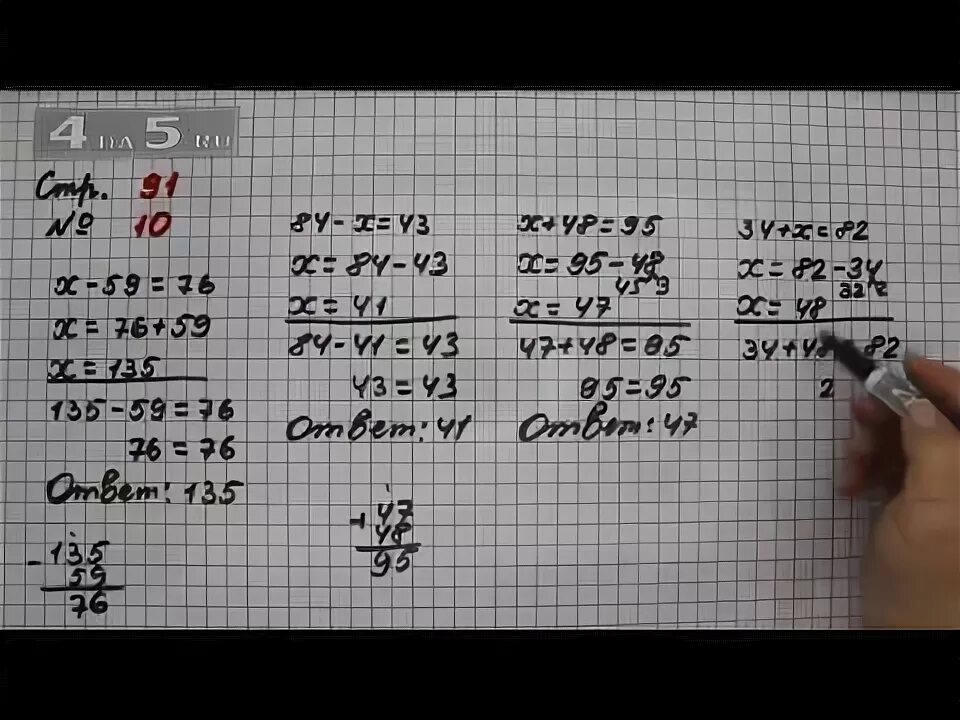 4 НА 5.RU
Стр. 91
№ 10
x - 59 = 76
x = 76 + 59
x = 135
135 - 59 = 76
76 = 76
Ответ: 135
135
- 59
76
84 - x = 43
x = 84 - 43
x = 41
84 - 41 = 43
43 = 43
Ответ: 41
x + 48 = 95
x = 95 - 48
45 3
x = 47
47 + 48 = 95
95 = 95
Ответ: 47
1
47
+ 48
95
34 + x = 82
x = 82 - 34
32 2
x = 48
34 + 48 82
2